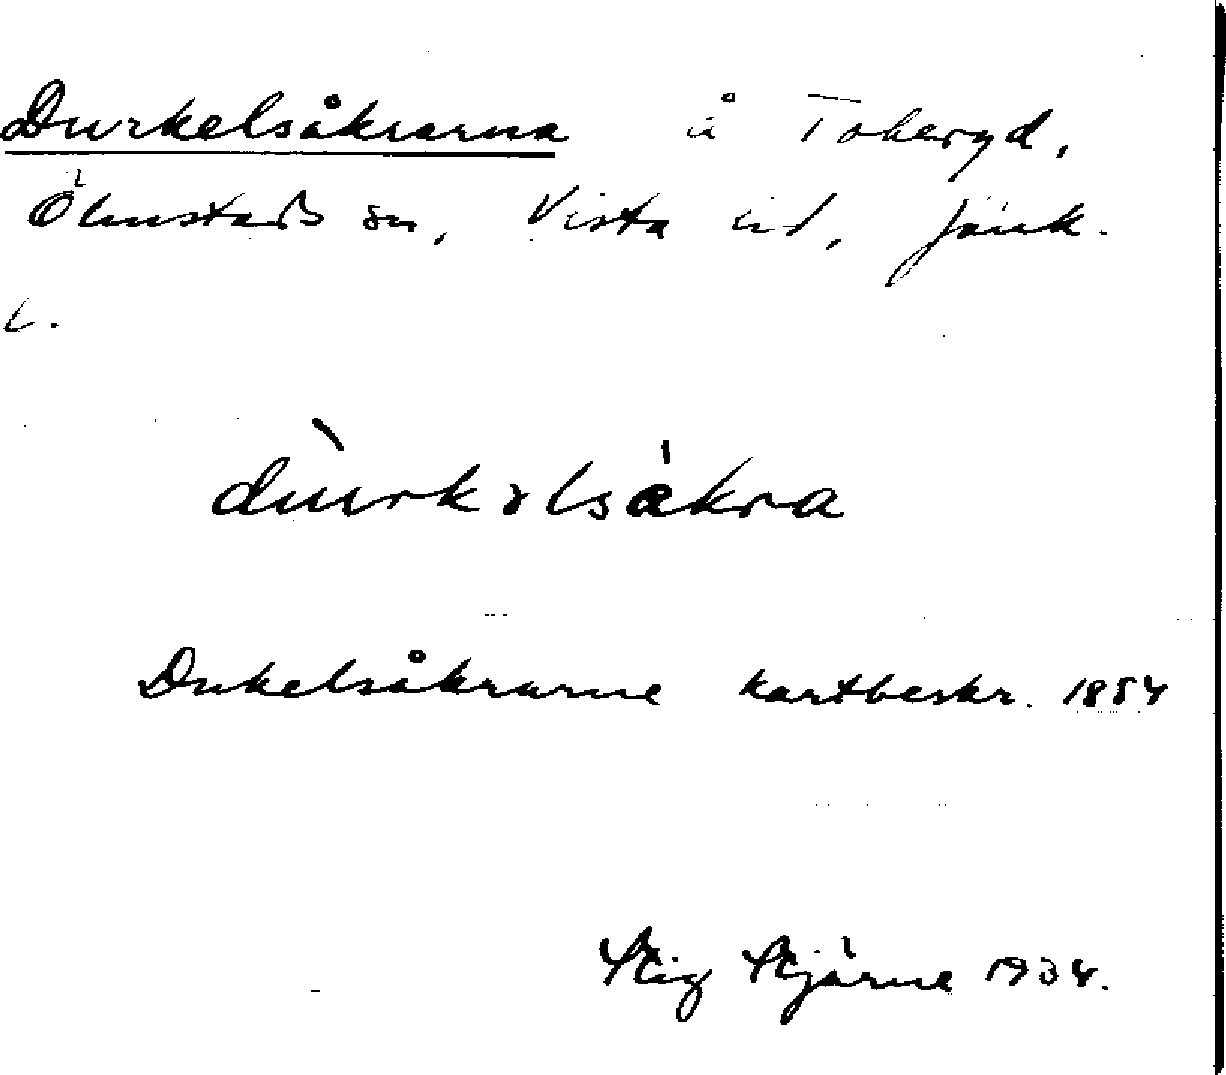 Durkelsåkrarna å Tokeryd,
Ölmstads sn, Vista hd, Jönk.
l.
dùrkəlsåkra
Dukelsåkrarne kartbeskr. 1854
Stig Stjärne 1934.